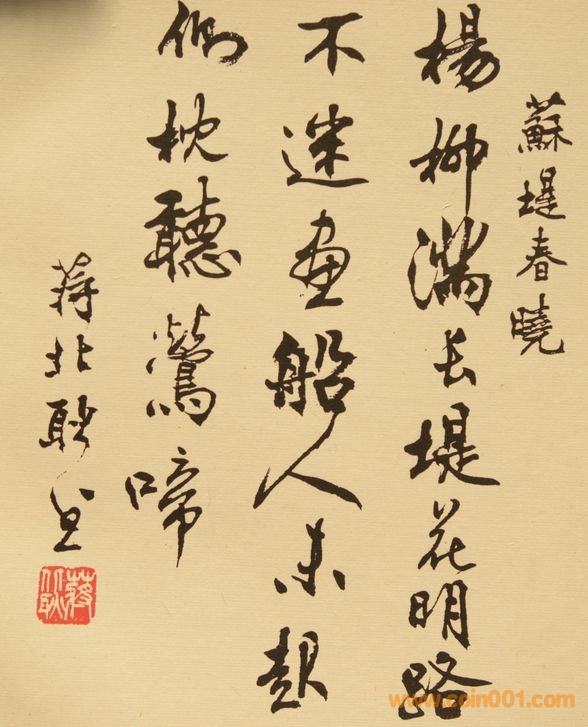 蘇堤春曉
楊柳滿长堤花明路
不迷画船人未起
側枕聽鶯啼
蒋北耿书
蔣北耿
www.coin001.com